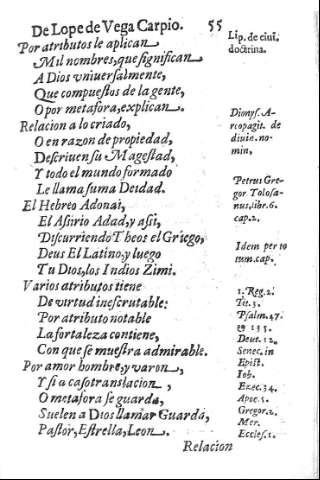 De Lope de Vega Carpio. 55
Por atributos le aplican
Mil nombres, que significan
A Dios vniuersalmente,
Que compuestos de la gente,
O por metafora, explican.
Relacion a lo criado,
O en razon de propiedad,
Descriuen su Magestad,
Y todo el mundo formado
Le llama suma Deidad.
El Hebreo Adonai,
El Assirio Adad, y assi,
Discurriendo Theos el Griego,
Deus El Latino, y luego
Tu Dios, los Indios Zimi.
Varios atributos tiene
De virtud inescrutable:
Por atributo notable
La fortaleza contiene,
Con que se muestra admirable.
Por amor hombre, y varon,
Y si a caso translacion,
O metafora se guarda,
Suelen a Dios llamar Guarda,
Pastor, Estrella, Leon.
Relacion
Lip. de ciui.
doctrina.
Dionys. A-
reopagit. de
diuin. no-
min,
Petrus Gre-
gor Tolosa-
nus, lib. 6.
cap. 2.
Idem per to
tum. cap.
1. Reg. 2.
Tit. 3.
Psalm. 47.
& 135.
Deut. 12.
Senec. in
Epist.
Iob.
Exec. 34.
Apoc. 5.
Gregor. 2.
Mor.
Eccles. 1.